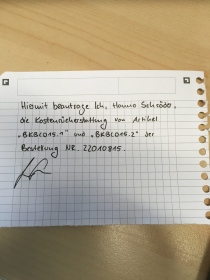 Hiermit beantrage Ich, Hanno Schröder,
die Kostenrückerstattung von Artikel
„BKBC015.1" und „BKBC015.2" der
Bestellung NR. 22010815.